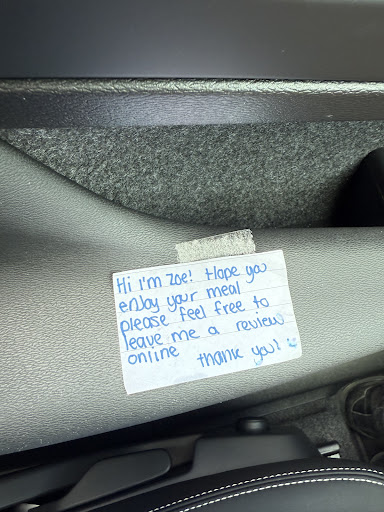 Hi I'm Zoe! Hope you
enjoy your meal
please feel free to
leave me a review
online thank you!